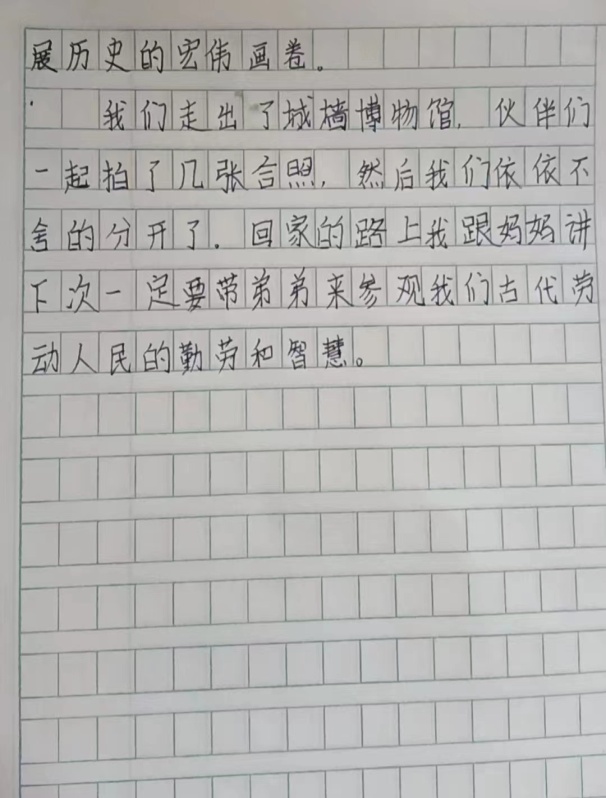 展历史的宏伟画卷。
我们走出了城墙博物馆，伙伴们
一起拍了几张合照，然后我们依依不
舍的分开了．回家的路上我跟妈妈讲
下次一定要带弟弟来参观我们古代劳
动人民的勤劳和智慧。